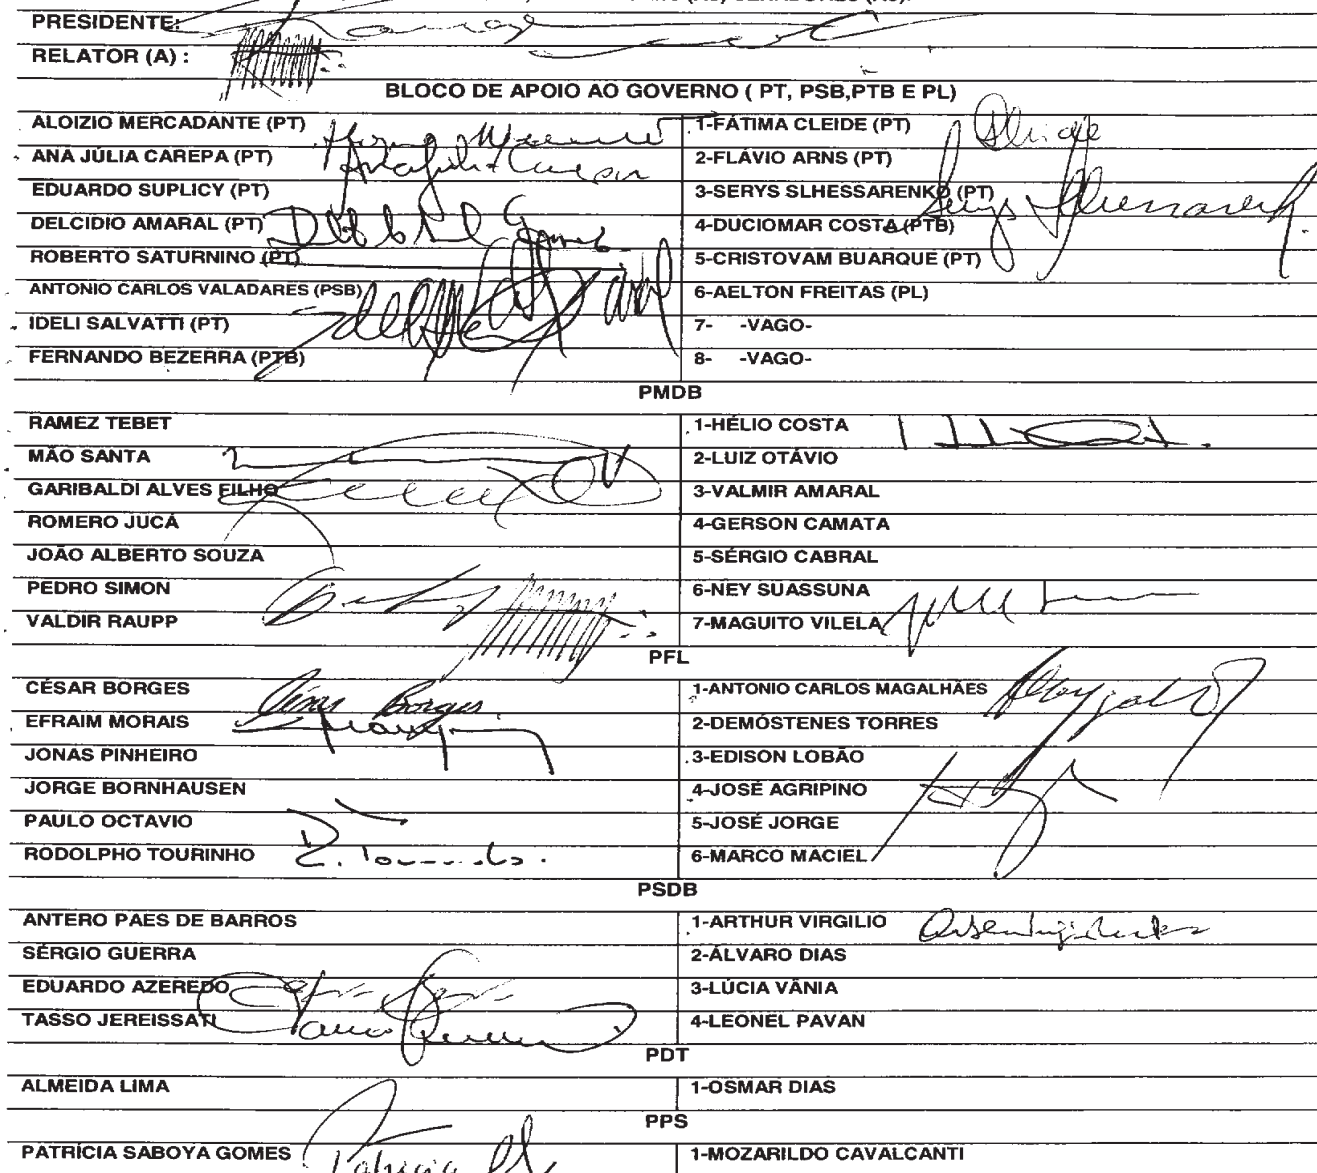 PRESIDENTE:
RELATOR (A) :
BLOCO DE APOIO AO GOVERNO ( PT, PSB,PTB E PL)
ALOIZIO MERCADANTE (PT) 1-FÁTIMA CLEIDE (PT)
ANA JÚLIA CAREPA (PT) 2-FLÁVIO ARNS (PT)
EDUARDO SUPLICY (PT) 3-SERYS SLHESSARENKO (PT)
DELCIDIO AMARAL (PT) 4-DUCIOMAR COSTA (PTB)
ROBERTO SATURNINO (PT) 5-CRISTOVAM BUARQUE (PT)
ANTONIO CARLOS VALADARES (PSB) 6-AELTON FREITAS (PL)
IDELI SALVATTI (PT) 7- -VAGO-
FERNANDO BEZERRA (PTB) 8- -VAGO-
PMDB
RAMEZ TEBET 1-HÉLIO COSTA
MÃO SANTA 2-LUIZ OTÁVIO
GARIBALDI ALVES FILHO 3-VALMIR AMARAL
ROMERO JUCÁ 4-GERSON CAMATA
JOÃO ALBERTO SOUZA 5-SÉRGIO CABRAL
PEDRO SIMON 6-NEY SUASSUNA
VALDIR RAUPP 7-MAGUITO VILELA
PFL
CÉSAR BORGES 1-ANTONIO CARLOS MAGALHÃES
EFRAIM MORAIS 2-DEMÓSTENES TORRES
JONAS PINHEIRO 3-EDISON LOBÃO
JORGE BORNHAUSEN 4-JOSÉ AGRIPINO
PAULO OCTAVIO 5-JOSÉ JORGE
RODOLPHO TOURINHO 6-MARCO MACIEL
PSDB
ANTERO PAES DE BARROS 1-ARTHUR VIRGILIO
SÉRGIO GUERRA 2-ÁLVARO DIAS
EDUARDO AZEREDO 3-LÚCIA VÂNIA
TASSO JEREISSATI 4-LEONEL PAVAN
PDT
ALMEIDA LIMA 1-OSMAR DIAS
PPS
PATRÍCIA SABOYA GOMES 1-MOZARILDO CAVALCANTI